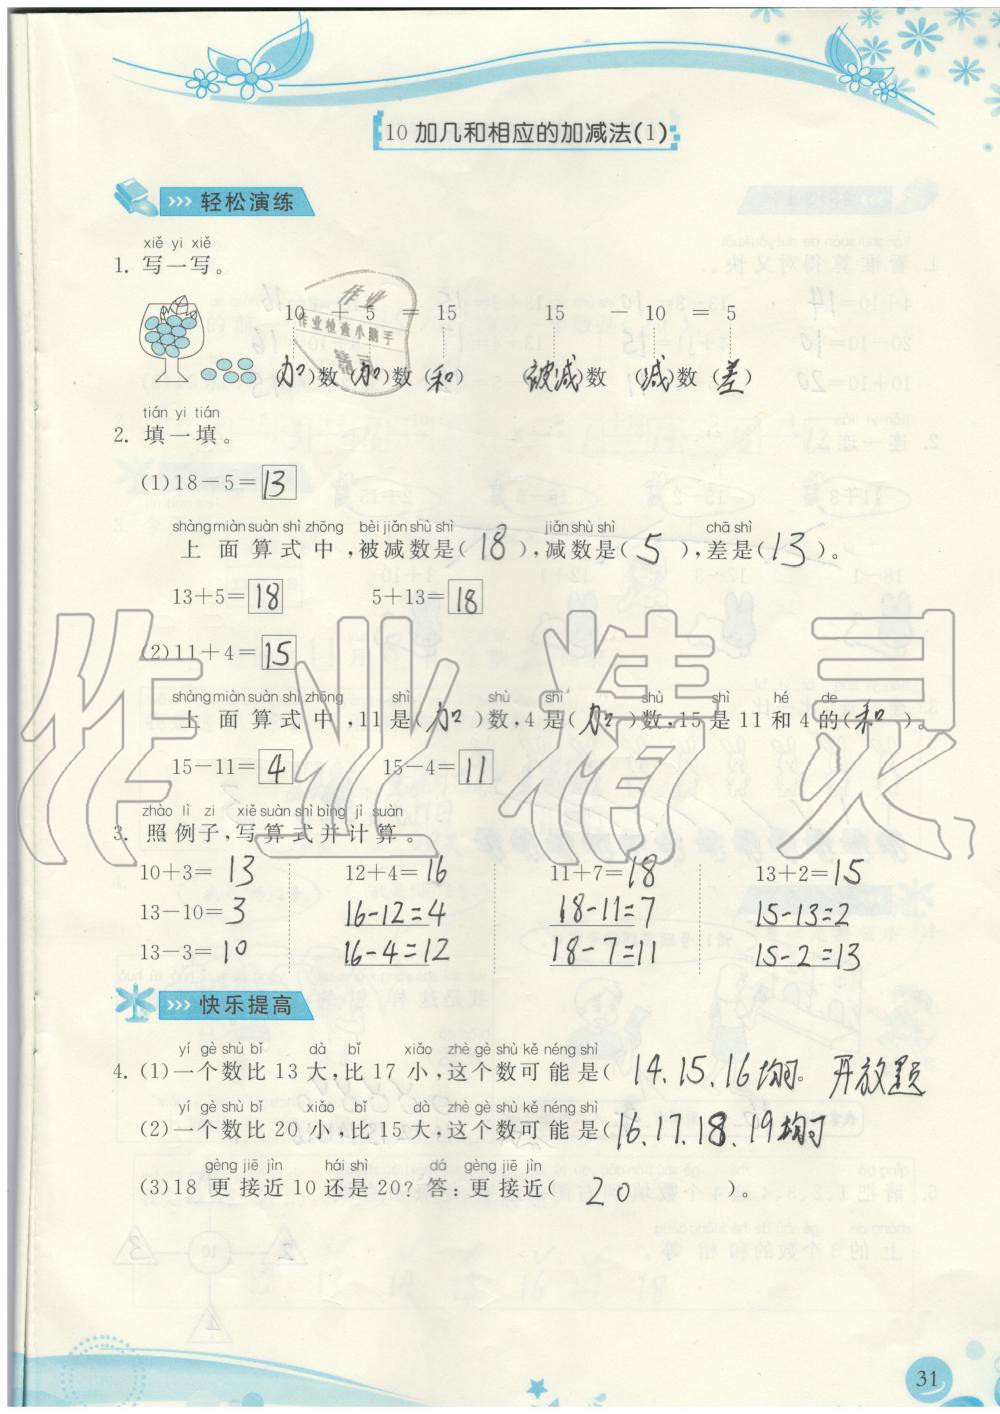 10 加几和相应的加减法(1)
>>> 轻松演练
xiě yi xiě
1. 写一写。
10 + 5 = 15 15 － 10 = 5
(加)数 (加)数 (和) (被减)数 (减)数 (差)
tián yi tián
2. 填一填。
(1)18－5=13
shàng miàn suàn shì zhōng bèi jiǎn shù shì jiǎn shù shì chā shì
上面算式中,被减数是(18),减数是(5),差是(13)。
13+5=18 5+13=18
(2)11+4=15
shàng miàn suàn shì zhōng shì shù shì shù shì hé de
上面算式中,11是(加)数,4是(加)数,15是11和4的(和)。
15－11=4 15－4=11
zhào lì zi xiě suàn shì bìng jì suàn
3. 照例子,写算式并计算。
10+3=13 12+4=16 11+7=18 13+2=15
13－10=3 16-12=4 18-11=7 15-13=2
13－3=10 16-4=12 18-7=11 15-2=13
>>> 快乐提高
yí gè shù bǐ dà bǐ xiǎo zhè gè shù kě néng shì
4. (1)一个数比13大,比17小,这个数可能是(14、15、16均可。 开放题
yí gè shù bǐ xiǎo bǐ dà zhè gè shù kě néng shì
(2)一个数比20小,比15大,这个数可能是(16、17、18、19均可
gèng jiē jìn hái shì dá gèng jiē jìn
(3)18更接近10还是20? 答:更接近(20)。
31
作业精灵
作业
作业检查小助手
精灵